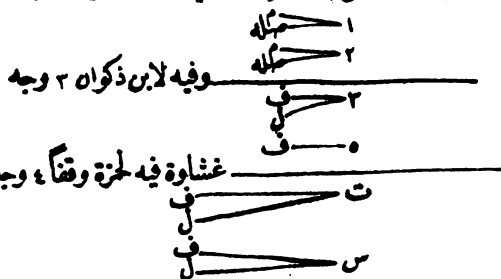 ١ م صله
٢ م صله
وفيه لابن ذكوان ٣ وجه
٣ ف ل
٥ ف
غشاوة فيه لحمزة وقفاً ٤ وجه
ت ف ل
س ف ل